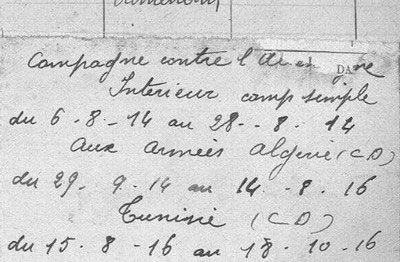 Campagne contre l'
DA
Interieur camp simple
du 6-8-14 au 28-8-14
Aux Armées Algerie (CD)
du 29-9-14 au 14-8-16
Tunisie (CD)
du 15-8-16 au 18-10-16